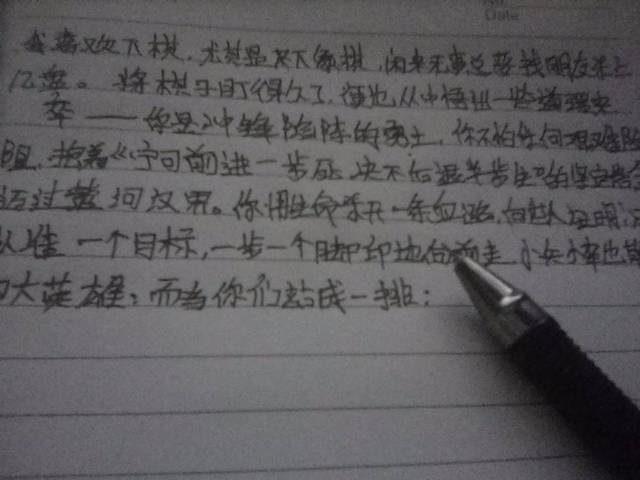 Date
我喜欢下棋,尤其是爱下象棋,闲来无事总要找朋友杀上
几盘。将棋子盯得久了,便也从中悟出一些道理来
卒——你是冲锋陷阵的勇士,你不怕任何艰难险
阻,抱着《宁可前进一步死,决不后退半步生》的坚定
过楚河汉界。你用生命杀开一条血路,向世人证明,
认准一个目标,一步一个脚印地向前走,小兵小卒也
大英雄;而当你们站成一排: